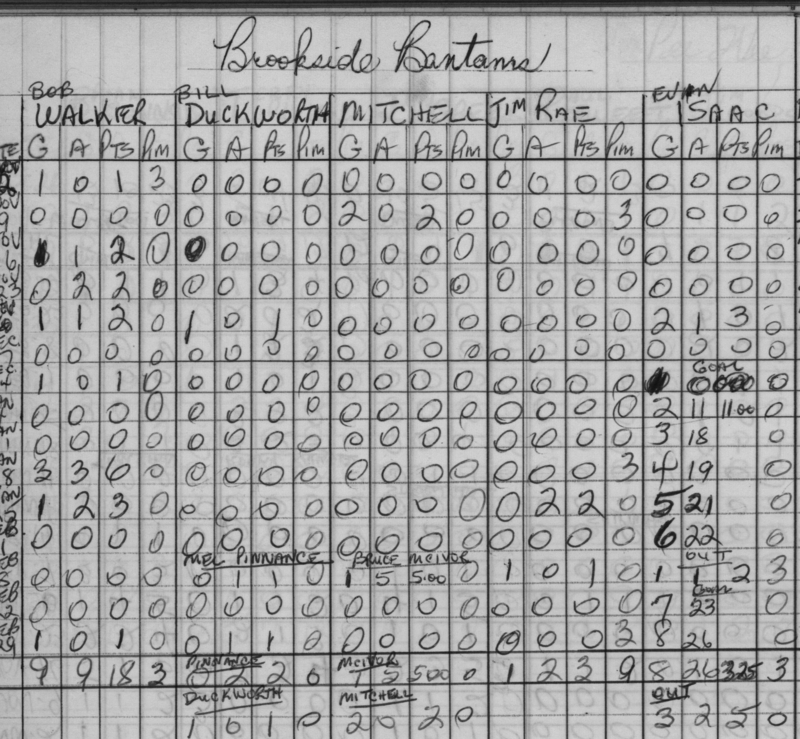 Brookside Bantams
BOB BILL EVAN
WALKER DUCKWORTH MITCHELL JIM RAE ISAAC
G A Pts Pim G A Pts Pim G A Pts Pim G A Pts Pim G A Pts Pim
1 0 1 3 0 0 0 0 0 0 0 0 0 0 0 0 0 0 0 0
0 0 0 0 0 0 0 0 2 0 2 0 0 0 0 3 0 0 0 0
1 1 2 0 0 0 0 0 0 0 0 0 0 0 0 0 0 0 0 0
0 2 2 0 0 0 0 0 0 0 0 0 0 0 0 0 0 0 0 0
1 1 2 0 1 0 1 0 0 0 0 0 0 0 0 0 2 1 3 0
0 0 0 0 0 0 0 0 0 0 0 0 0 0 0 0 0 0 0 0
GOAL
1 0 1 0 0 0 0 0 0 0 0 0 0 0 0 0 0
0 0 0 0 0 0 0 0 0 0 0 0 0 0 0 0 2 11 11.00 0
0 0 0 0 0 0 0 0 0 0 0 0 0 0 0 0 3 18 0
3 3 6 0 0 0 0 0 0 0 0 0 0 0 0 3 4 19 0
1 2 3 0 0 0 0 0 0 0 0 0 0 2 2 0 5 21 0
0 0 0 0 0 0 0 0 0 0 0 0 0 0 0 0 6 22 0
MEL PINNANCE BRUCE MCIVOR OUT
0 0 0 0 0 1 1 0 1 5 5.00 0 1 0 1 0 1 1 2 3
0 0 0 0 0 0 0 0 0 0 0 0 0 0 0 0 7 23 0
1 0 1 0 0 1 1 0 0 0 0 0 0 0 0 3 8 26 0
PINNANCE MCIVOR
9 9 18 3 0 2 2 0 1 5 500 0 1 2 3 9 8 26 325 3
DUCKWORTH MITCHELL OUT
1 0 1 0 2 0 2 0 3 2 5 0